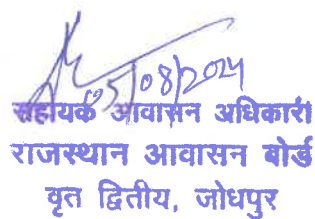 05/08/2024
सहायक आवासन अधिकारी
राजस्थान आवासन बोर्ड
वृत द्वितीय, जोधपुर